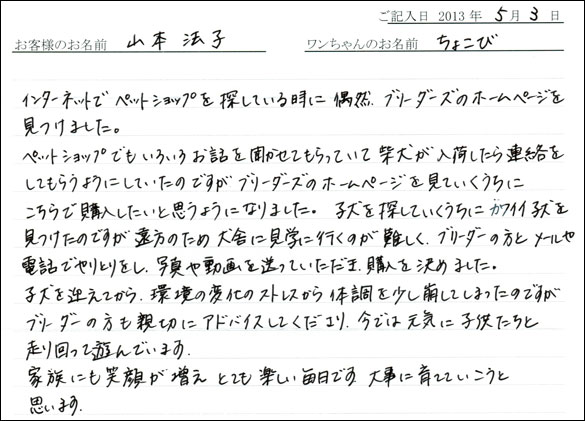 ご記入日 2013 年 5 月 3 日
お客様のお名前 山本 法子 ワンちゃんのお名前 ちょこび
インターネットで ペットショップを 探している時に 偶然、ブリーダーズのホームページを
見つけました。
ペットショップでもいろいろお話を聞かせてもらっていて 柴犬が入荷したら連絡を
してもらうようにしていたのですが ブリーダーズのホームページを見ていくうちに
こちらで購入したいと思うようになりました。 子犬を探していくうちに カワイイ子犬を
見つけたのですが 遠方のため 犬舎に見学に行くのが 難しく、ブリーダーの方と メールや
電話でやりとりをし、写真や動画を送っていただき、購入を決めました。
子犬を迎えてから、環境の変化のストレスから 体調を少し崩してしまったのですが
ブリーダーの方も親切にアドバイスしてくださり、今では元気に子供たちと
走り回って遊んでいます。
家族にも笑顔が増え とても楽しい毎日です。大事に育てていこうと
思います。